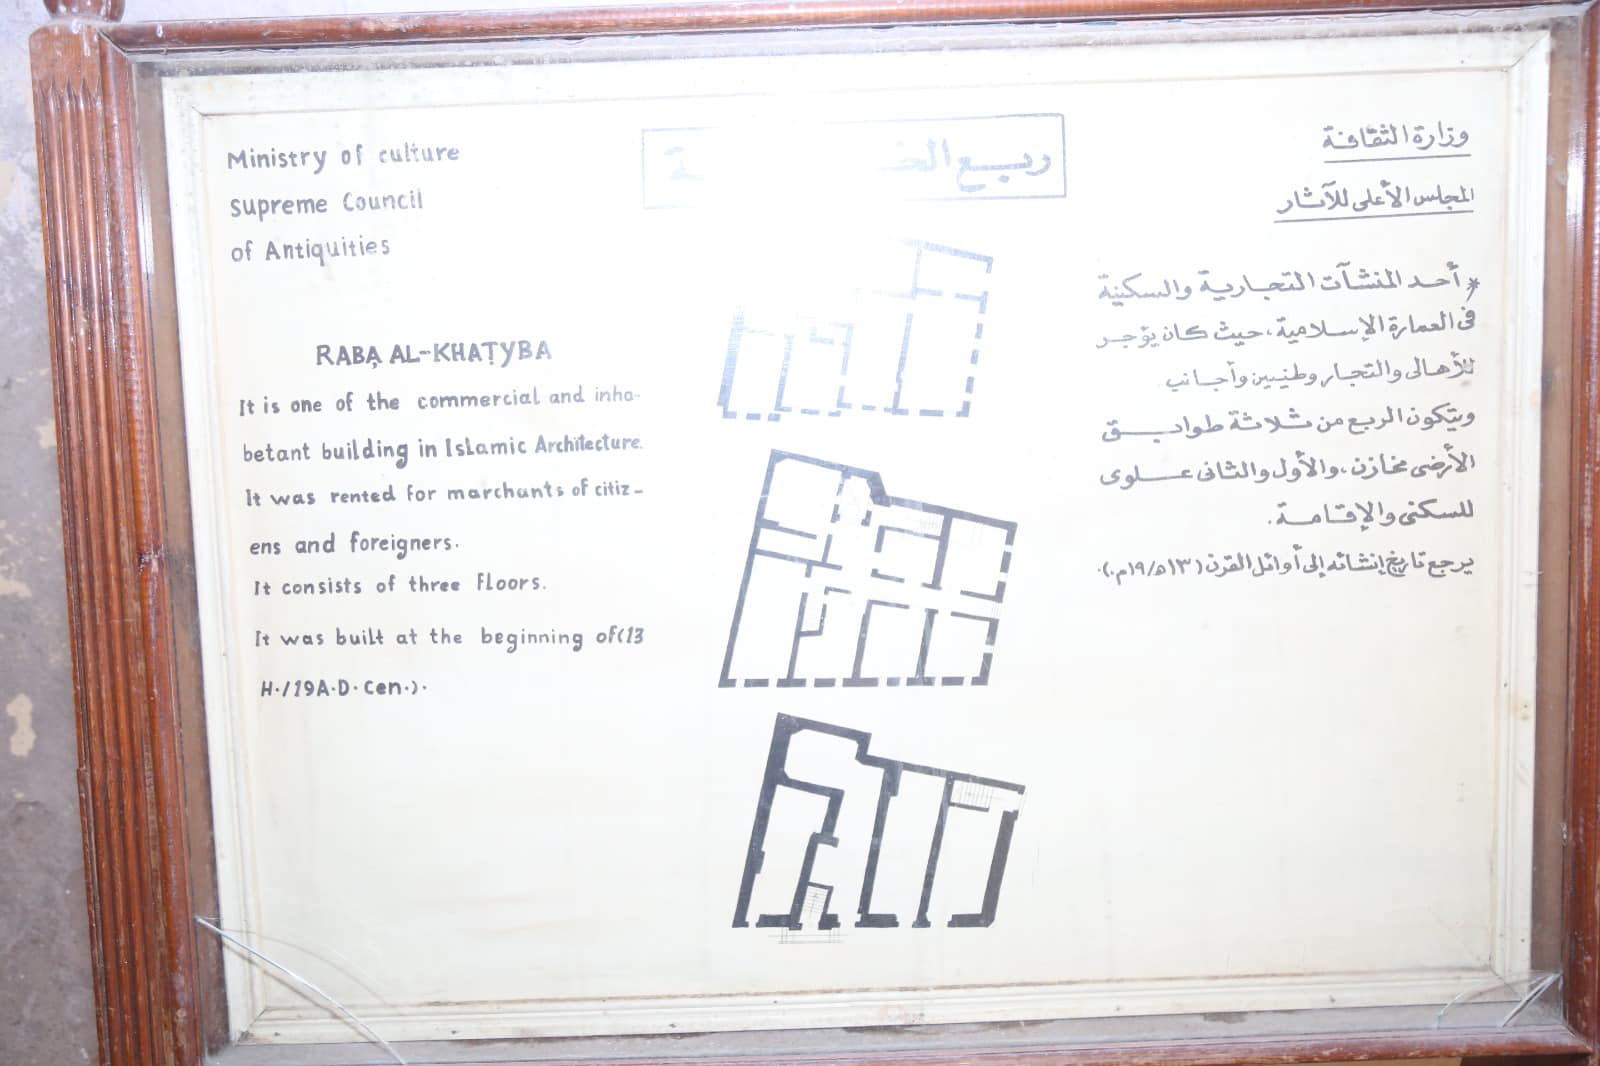 Ministry of culture
supreme Council
of Antiquities
RABA AL-KHAṬYBA
It is one of the commercial and inha-
betant building in Islamic Architecture.
It was rented for marchants of citiz-
ens and foreigners.
It consists of three floors.
It was built at the beginning of(13
H./19A.D. Cen.).
ربع
وزارة الثقافة
المجلس الأعلى للآثار
* أحد المنشآت التجارية والسكنية
فى العمارة الإسلامية، حيث كان يؤجر
للأهالى والتجار وطنيين وأجانب
ويتكون الربع من ثلاثة طوابق
الأرضى مخازن، والأول والثانى علوى
للسكنى والإقامة.
يرجع تاريخ إنشائه إلى أوائل القرن (١٣ه/١٩م.).